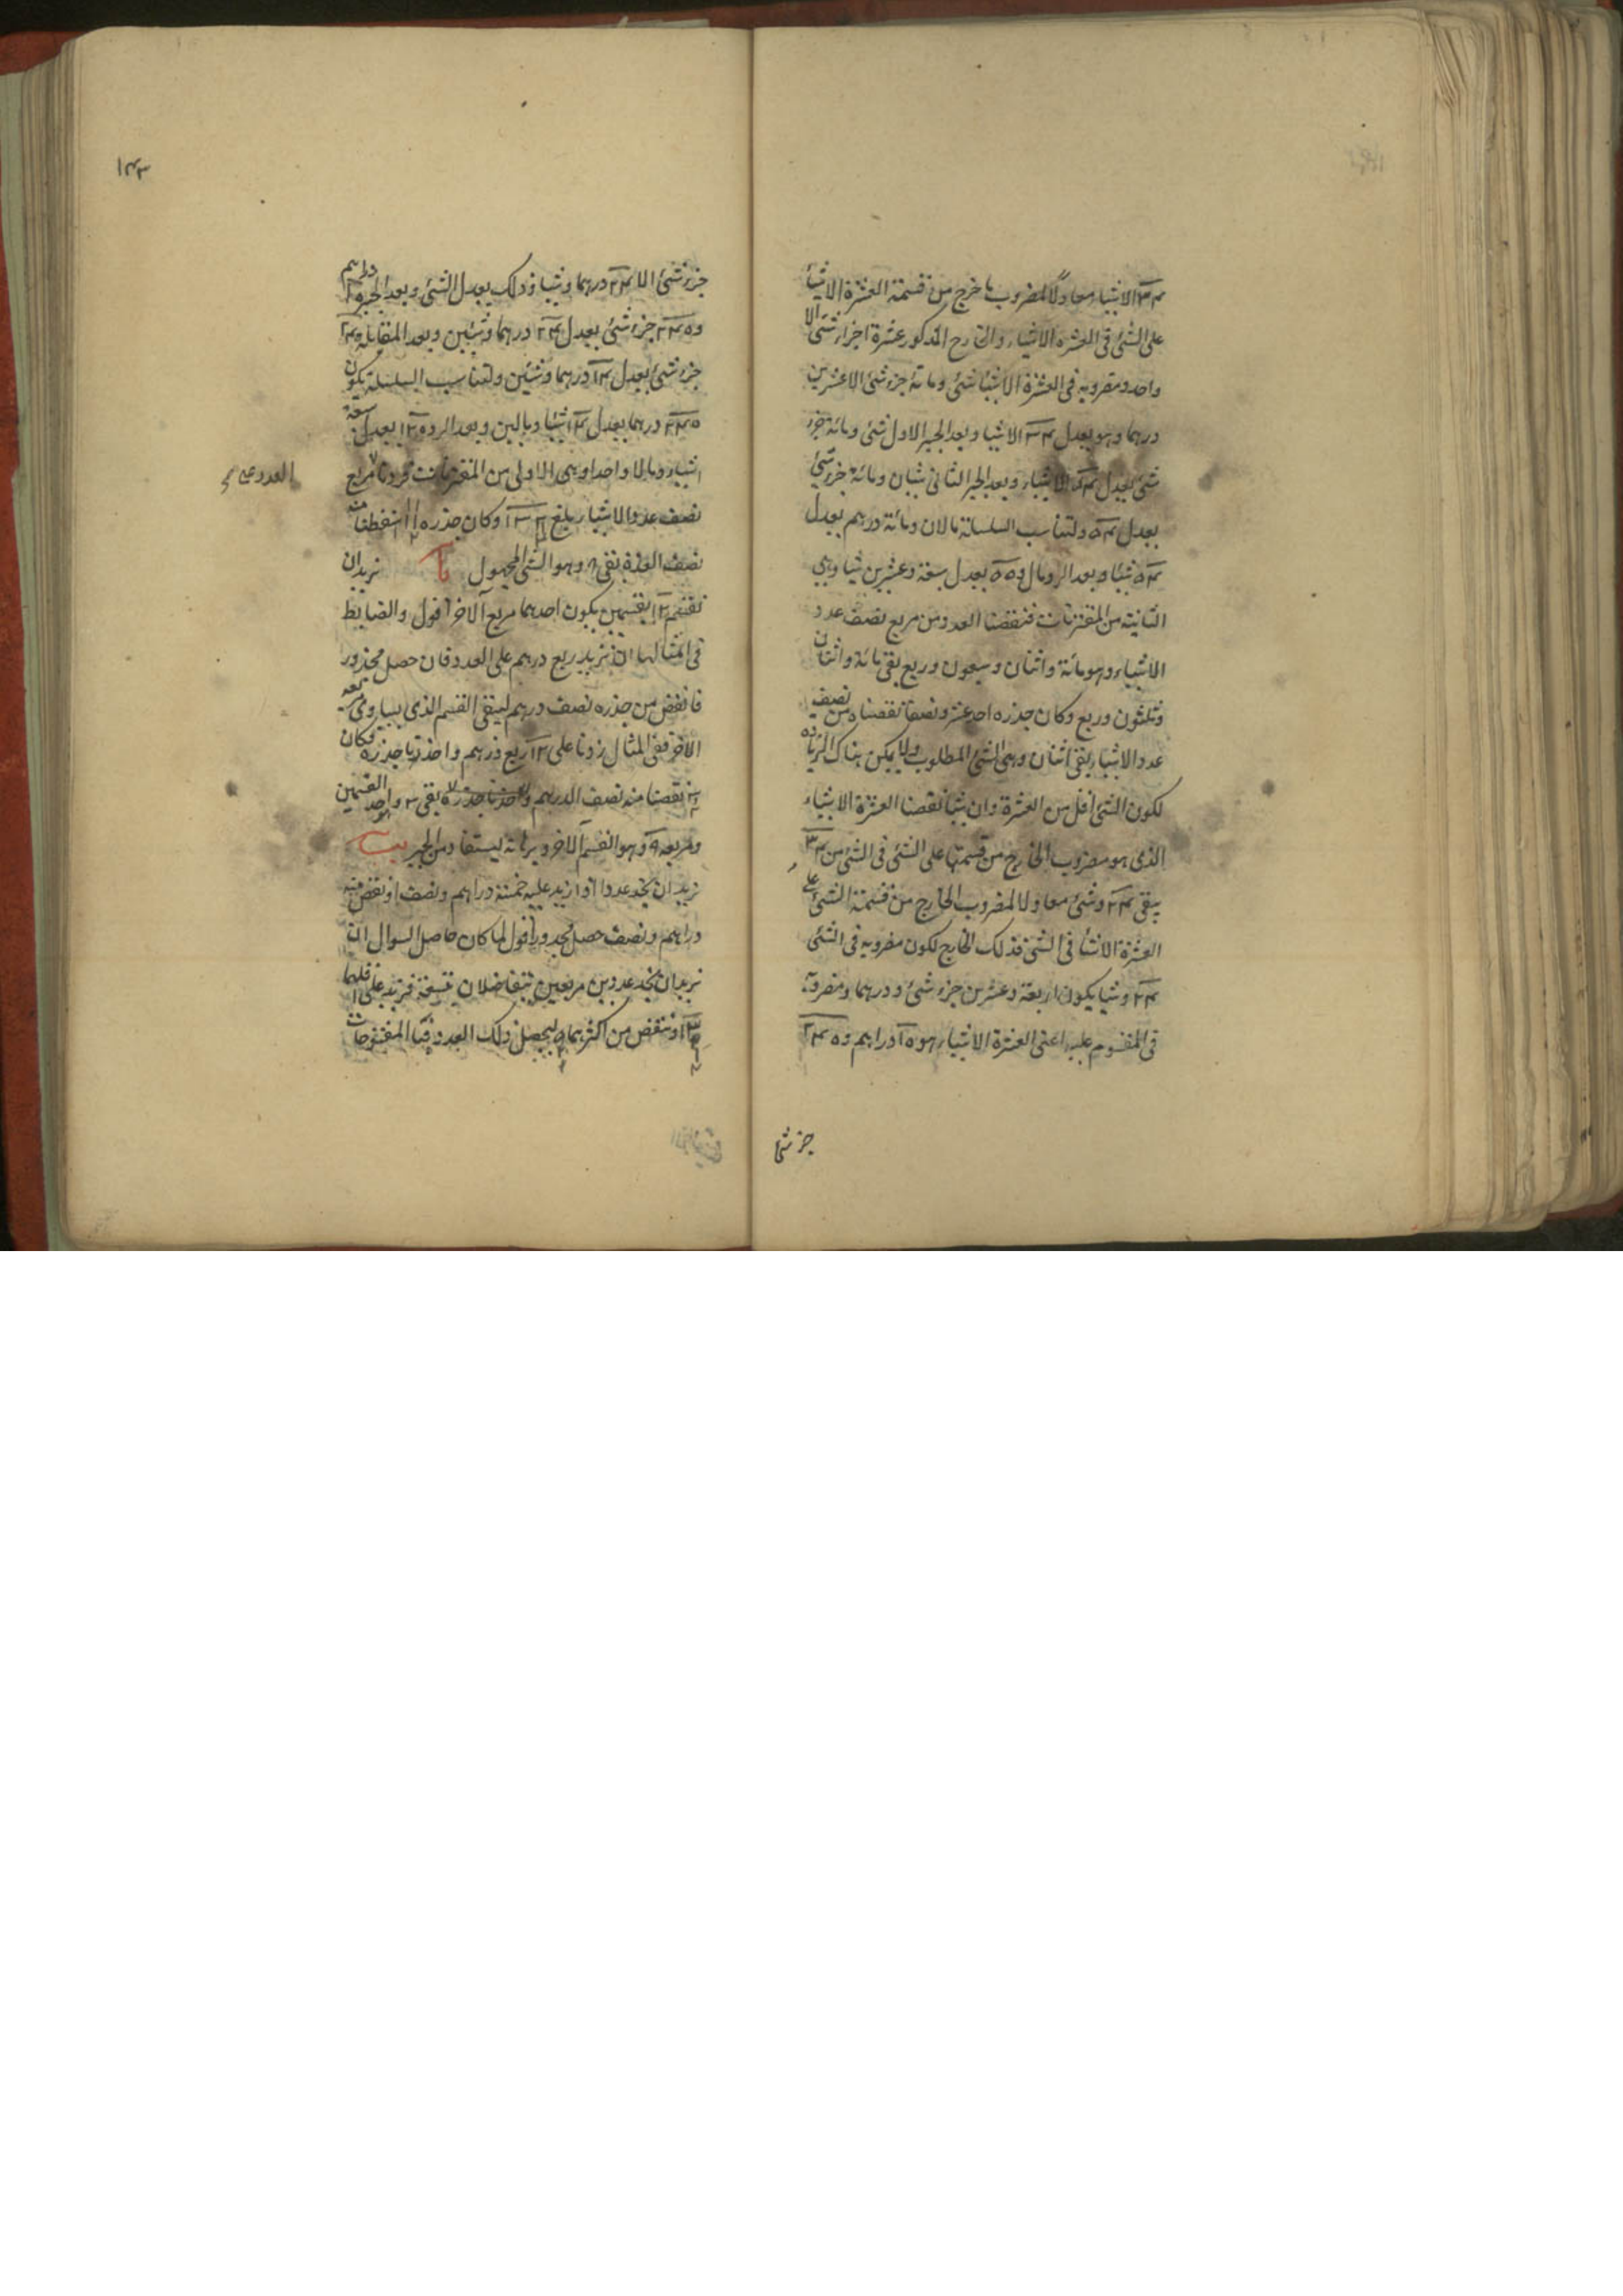 ٣٤ الا شيئا معادلا لمضروب ما خرج من قسمة العشرة الا شيئا
على الشئ فى العشرة الا شيئا والخارج المذكور عشرة اجزاء شئ الا
واحد ومضروبه فى العشرة الا شيئا شئ ومائة جزء شئ الا عشرين
درهما وهو يعدل ٣٤ الا شيئا وبعد الجبر الاول شئ ومائة جزء
شئ يعدل ٥٤ الا شيئا وبعد الجبر الثانى شيئان ومائة جزء شئ
يعدل ٥٤ ولتناسب السلسلة مالان ومائة درهم يعدل
٥٤ شيئا وبعد الرد مال و ٥٠ يعدل سبعة وعشرين شيئا وهى
الثانية من المقترنات فنقصنا العدد من مربع نصف عدد
الاشياء وهو مائة واثنان وسبعون وربع بقى مائة واثنان
وثلثون وربع وكان جذره احد عشر ونصفا نقصناه من نصف
عدد الاشياء بقى اثنان وهى الشئ المطلوب ولا يمكن هناك الزيادة
لكون الشئ اقل من العشرة وان شئنا نقصنا العشرة الا شيئا
الذى هو مضروب الخارج من قسمتها على الشئ فى الشئ من ٣٤
يبقى ٢٤ وشئ معادلا لمضروب الخارج من قسمة الشئ على
العشرة الا شيئا فى الشئ فذلك الخارج لكون مضروبه فى الشئ
٢٤ وشيئا يكون اربعة وعشرين جزء شئ ودرهما ومضروبه
فى المقسوم عليه اعنى العشرة الا شيئا هو ١٥ دراهم و ٢٤٠
جزء شئ
١٤٣
جزء شئ الا ٢٤ درهما وشيئا وذلك يعدل الشئ وبعد الجبر
و ٢٤٠ جزء شئ يعدل ٢٤ درهما وشيئين وبعد المقابلة ٢٤٠
جزء شئ يعدل ١٤ درهما وشيئين ولتناسب السلسلة يكون
٢٤٠ درهما يعدل ١٤ شيئا ومالين وبعد الرد ١٢٠ يعدل سبعة
اشياء ومالا واحدا وهى الاولى من المقترنات فزدنا مربع
العدد على
نصف عدد الاشياء بلغ ١٣٢ وكان جذره ١١ اسقطنا منه
نصف العدة بقى ٨ وهو الشئ المجهول يا نريد ان
نقسم ١٢ بقسمين يكون احدهما مربع الاخر اقول والضابط
فى امثالها ان نزيد ربع درهم على العدد فان حصل مجذور
فانقص من جذره نصف درهم ليبقى القسم الذى يساوى مربعه
الاخر ففى المثال زدنا على ١٢ ربع درهم واخذنا جذره فكان
٣ نقصنا منه نصف الدرهم بقى ٣ واحد القسمين
ومربعه ٩ وهو القسم الاخر وبرهانه يستفاد من الجبر يب
نريد ان نجد عددا اذا زيد عليه خمسة دراهم ونصف او نقص منه
دراهم ونصف حصل مجذور اقول لما كان حاصل السوال ان
نريد ان نجد عددين مربعين يتفاضلان بتسعة فنزيد على اقلهما
٣ او ننقص من اكثرهما ٥ ليحصل ذلك العدد فبنا المفتوحات